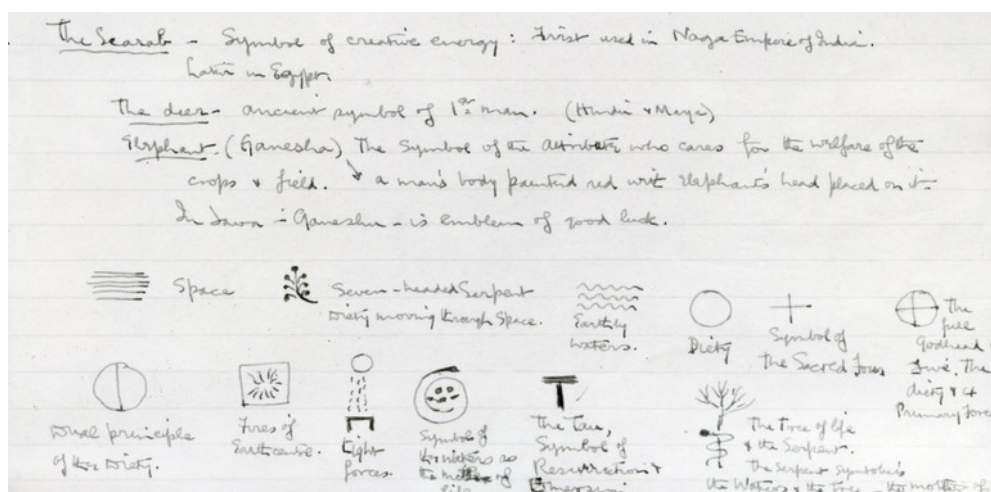 The Scarab - Symbol of creative energy: First used in Naga Empire of India.
Later in Egypt.
The deer - ancient symbol of 1st man. (Hindu & Maya)
Elephant. (Ganesha) The Symbol of the Attribute who cares for the welfare of the
crops & field. a man's body painted red with elephant's head placed on it -
In Java - Ganesha - is emblem of good luck.
Space
Seven-headed Serpent
Diety moving through Space.
Earthly
waters.
Diety
Symbol of
the Sacred Four
The
full
godhead
Five. The
diety & 4
Primary forces
Dual principle
of the Diety.
Fires of
Earth centre.
Light
forces.
Symbol of
the waters as
the mother of
life
The Tau,
Symbol of
Resurrection &
Emersion
The Tree of life
& the Serpent.
The serpent symbolises
the Waters & the Tree - the mother of